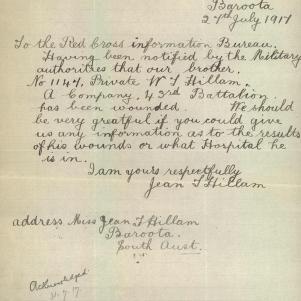 Baroota
27th July 1917
To the Red Cross information Bureau.
Having been notified by the Military
authorities that our brother.
No 1147, Private W. J. Hillam.
A Company, 43rd Battalion.
has been wounded. We should
be very greatful if you could give
us any information as to the results
of his wounds or what Hospital he
is in.
I am yours respectfully
Jean J Hillam
address. Miss Jean J Hillam
Baroota.
South Aust.
Acknowledged